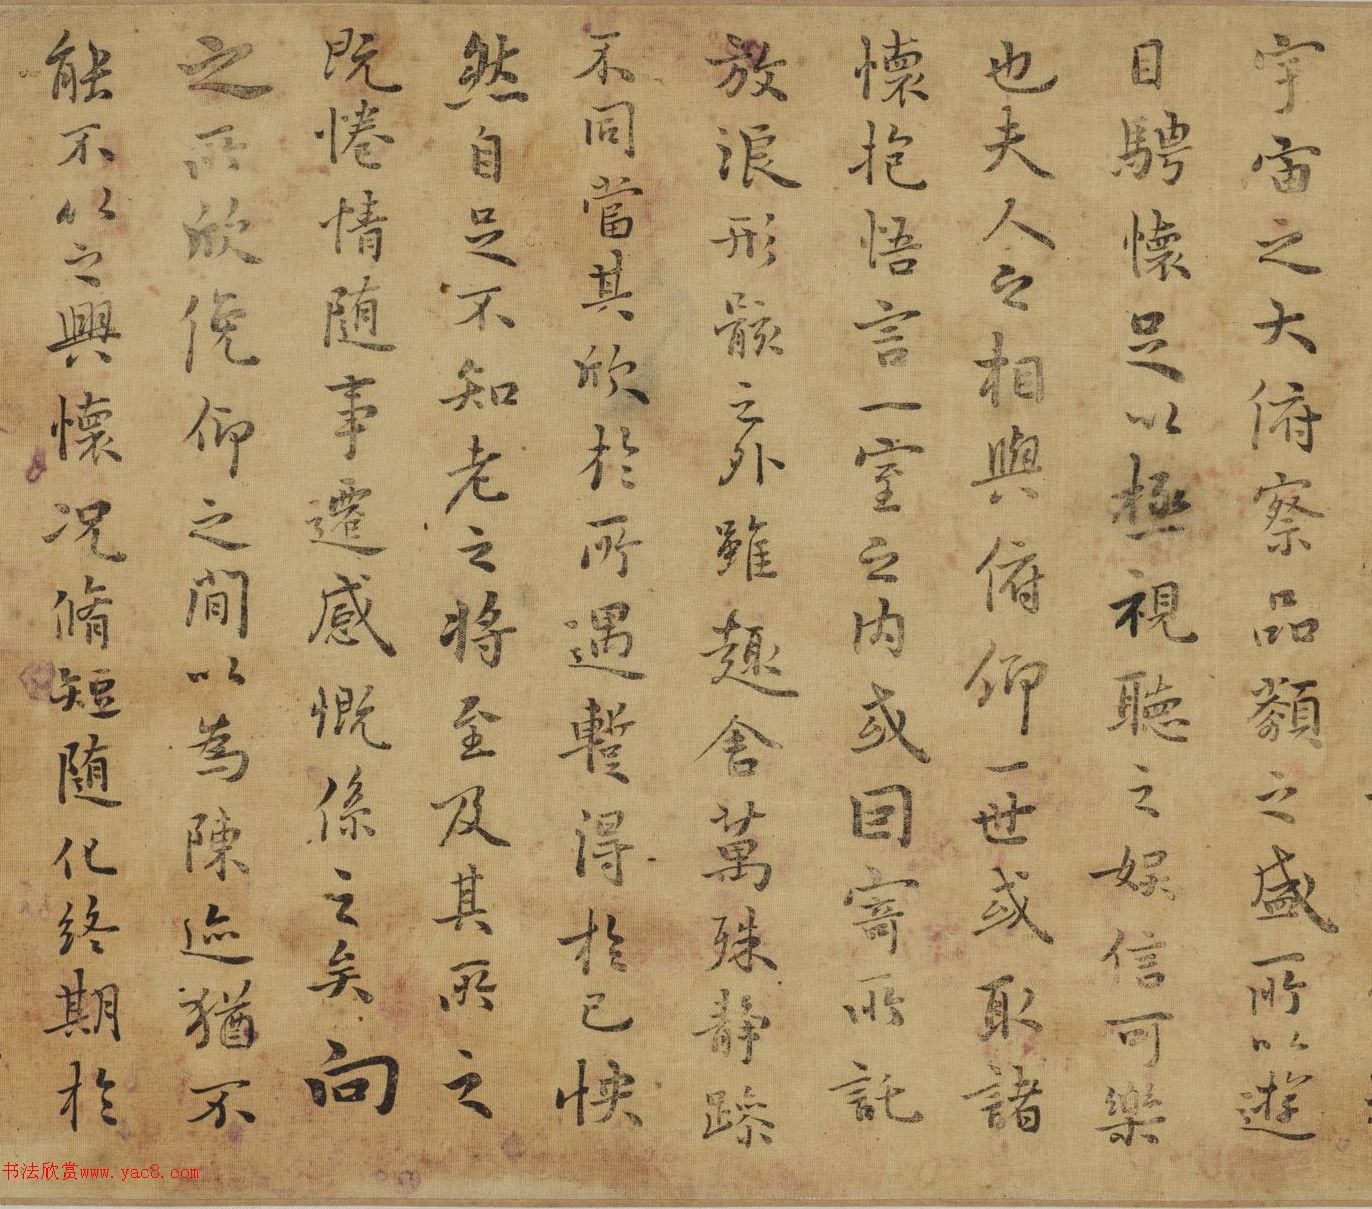 宇宙之大俯察品類之盛所以遊
目騁懷足以極視聽之娛信可樂
也夫人之相與俯仰一世或取諸
懷抱悟言一室之內或曰寄所託
放浪形骸之外雖趣舍萬殊静躁
不同當其欣於所遇暫得於己怏
然自足不知老之将至及其所之
既惓情随事遷感慨係之矣向
之所欣俛仰之間以為陳迹猶不
能不以之興懷况脩短随化終期於
书法欣赏www.yac8.com